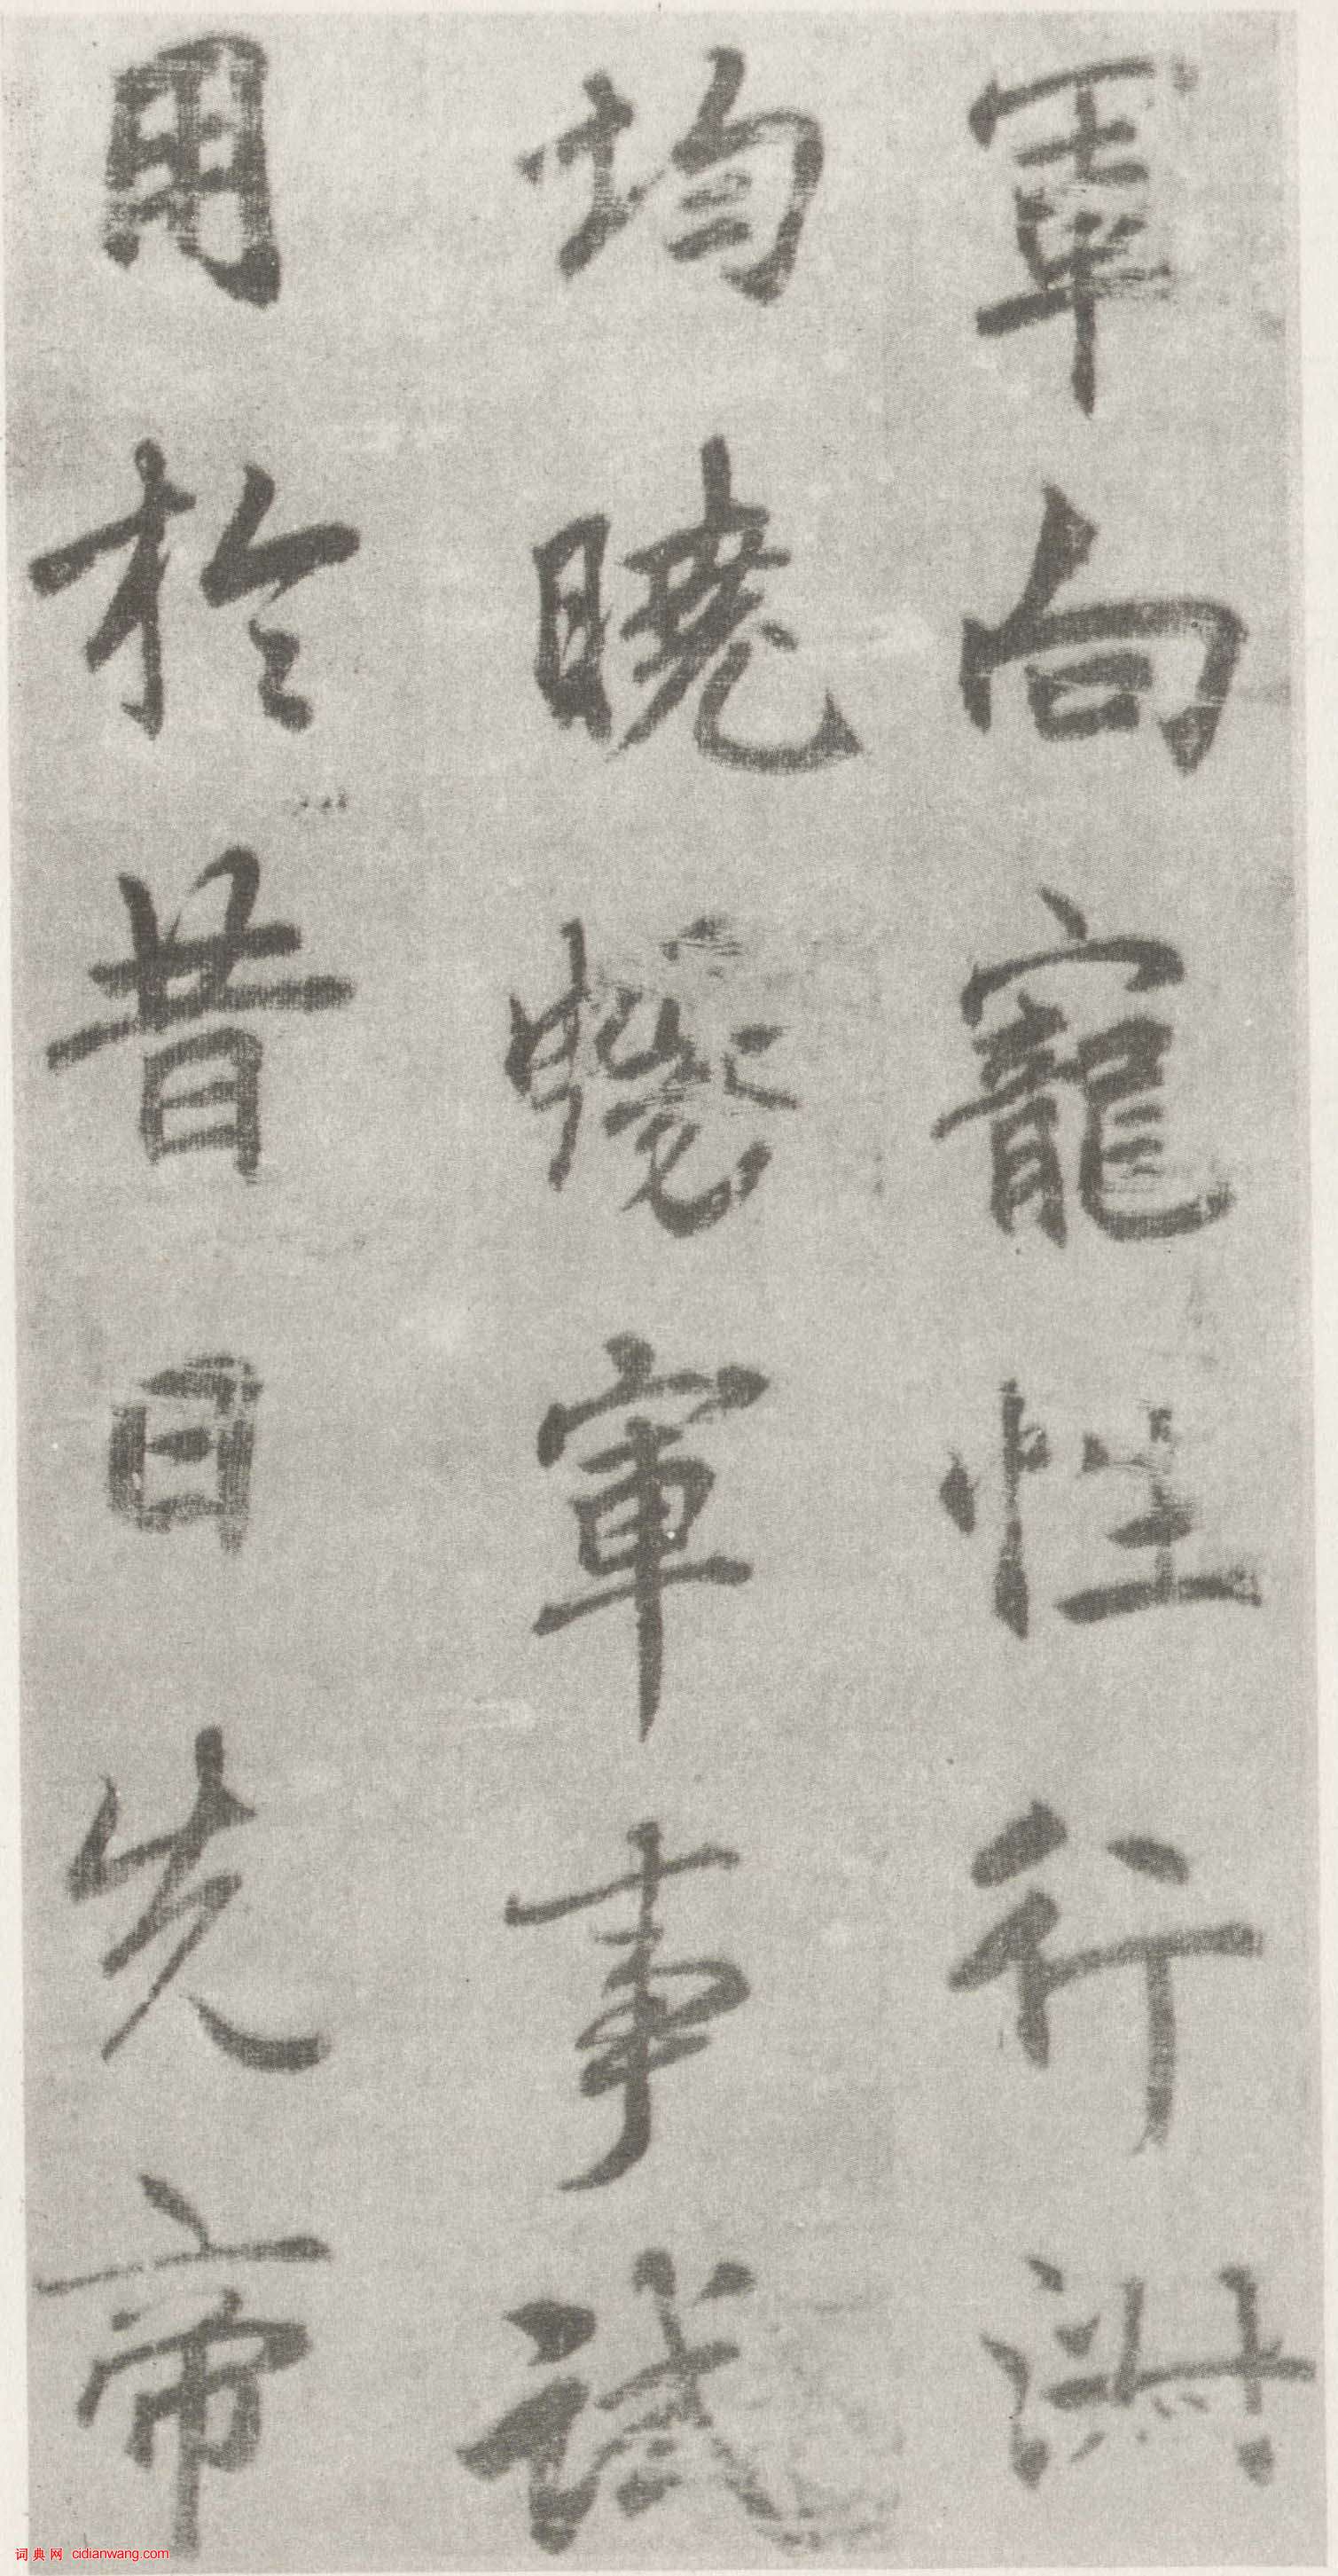 軍向寵性行淑
均曉暢軍事試
用於昔日先帝
词典网 cidianwang.com